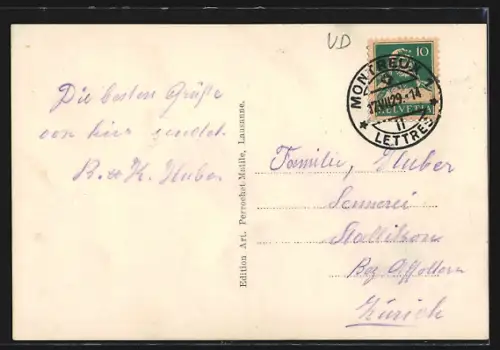 VD
10
HELVETIA
MONTREUX 1
17.VII.29.-14
11
LETTRES
Die besten Grüße
von hier sendet
R. & H. Huber
Edition Art. Perrochet-Matile, Lausanne.
Familie, Huber
Sennerei
Stallikon
Bez. Affoltern
Zürich